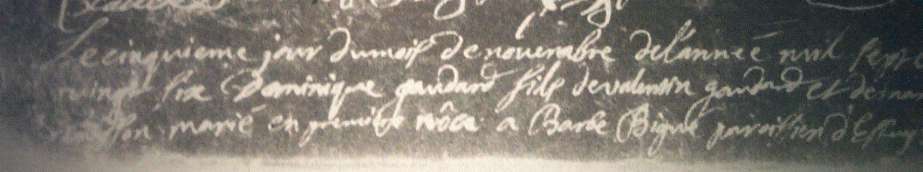 Le cinquieme jour dumois de novenabre del'anneé mil sept
vingt six Dominique gaudard fils devalentin gaudard et de
marié en premiere nôce a Barbe Bigué paroissien d'